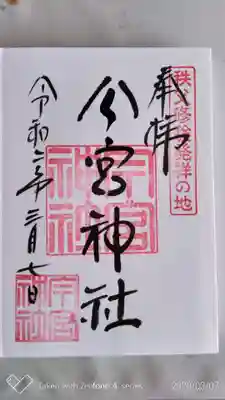 秩父修験発祥の地
奉拝
今宮神社
今宮
神社
令和二年三月七日
今宮
神社
Taken with Zenfone 4 series
2020/03/07